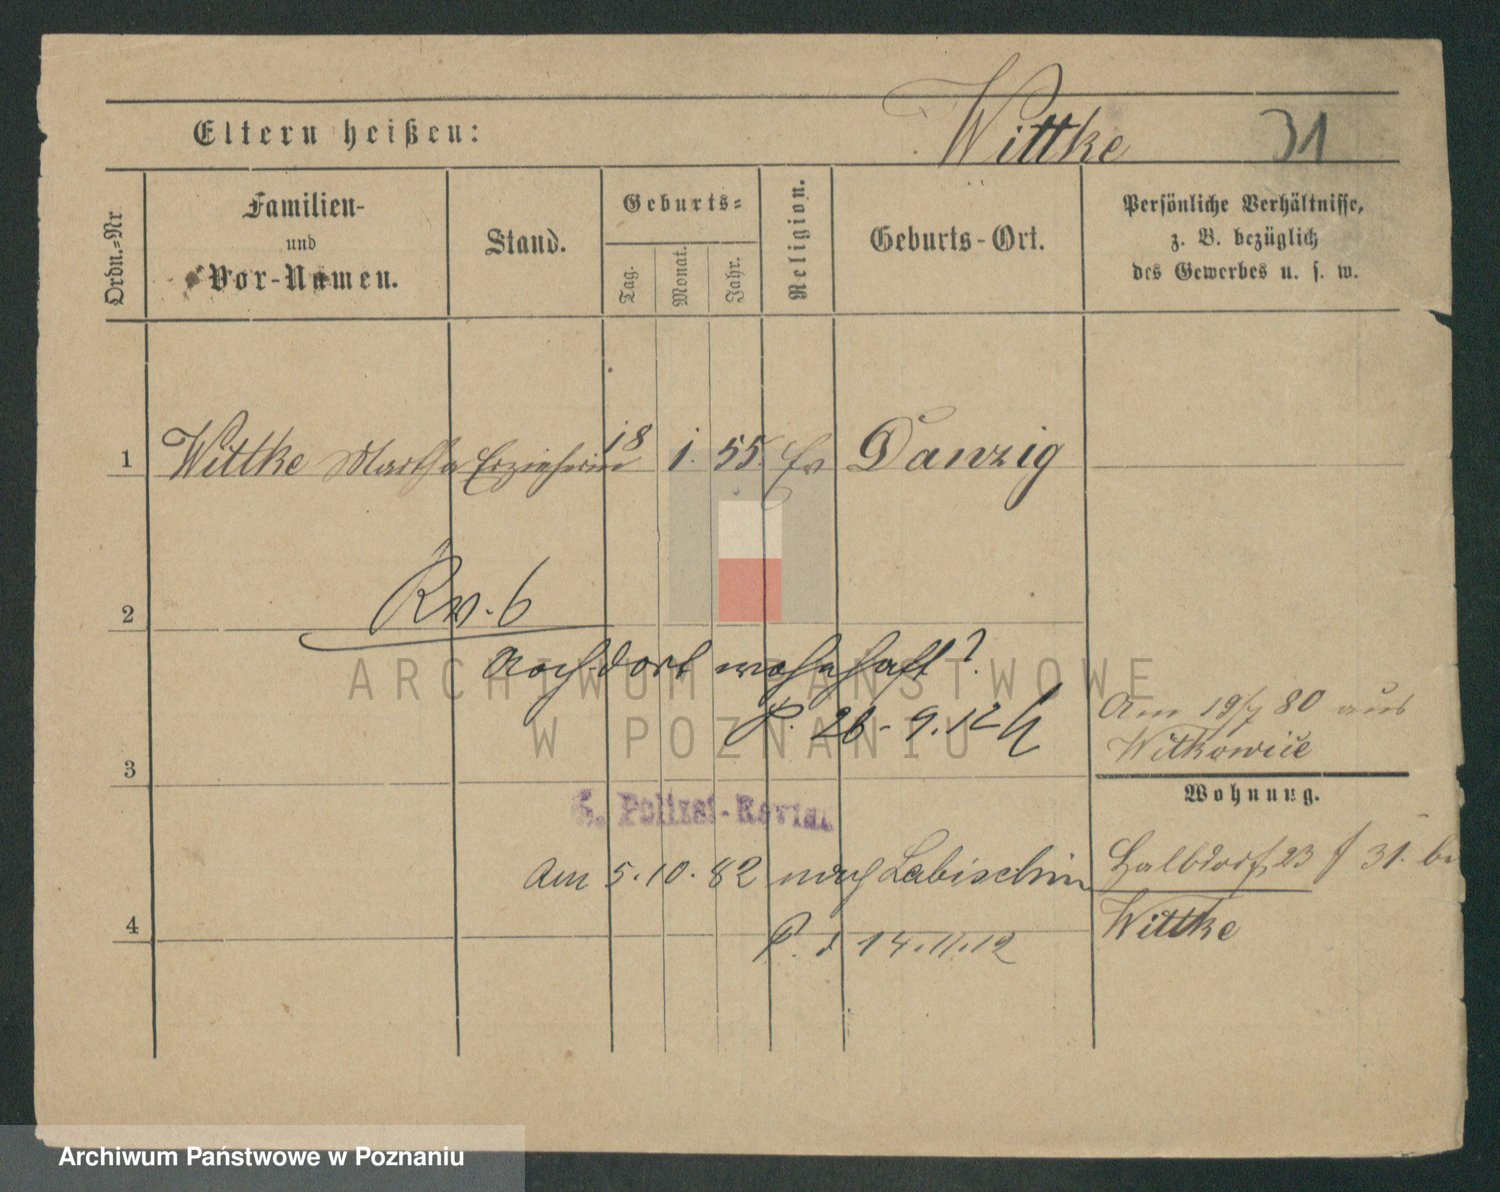 Eltern heißen:
Wittke
31
Ordn.=Nr
Familien-
und
Vor-Namen.
Stand.
Geburts=
Tag.
Monat.
Jahr.
Religion.
Geburts-Ort.
Persönliche Verhältnisse,
z. B. bezüglich
des Gewerbes u. s. w.
1 Wittke Martha Erzieherin 18 1. 55. Ev Danzig
Rv. 6
2
Noch dort wohnhaft?
P. 26-9.12
Am 19/7 80 aus
Witkowice
3
Wohnung.
5. Polizei-Revier.
Am 5.10.82 nach Labischin
Halbdorf 23 31. bei
Wittke
4
P. d 14.11.12
ARCHIWUM PAŃSTWOWE
W POZNANIU
Archiwum Państwowe w Poznaniu